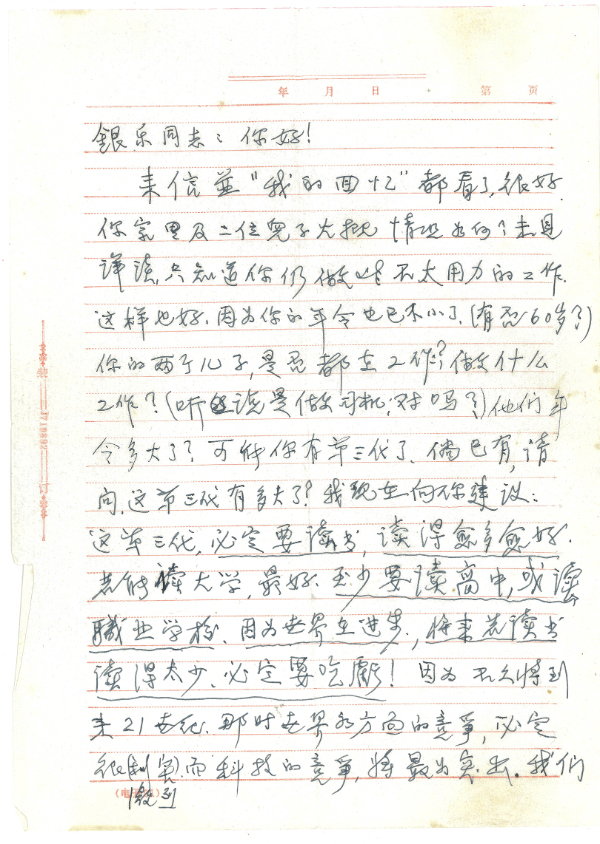 年 月 日 第 页
銀乐同志：你好！
来信並“我的回忆”都看了,很好.
你家里及二位兒子大概情况如何？未見
详谈,只知道你仍做些不太用力的工作.
这样也好.因为你的年令也已不小了.(有否60岁了)
你的两个儿子,是否都在工作？做什么
工作？(听说是做司机,对吗？)他们年
令多大了？可能你有第三代了.倘已有,请
问,这第三代有多大了？我现在向你建议：
这第三代,必定要读书,读得愈多愈好.
若能读大学,最好.至少要读高中,或读
職业学校.因为世界在进步,将来若读书
读得太少,必定要吃虧！因为不久将到
来21世纪.那时世界各方面的竞争,必定
很(利害)而科技的竞争,将最为突出.我们
激烈